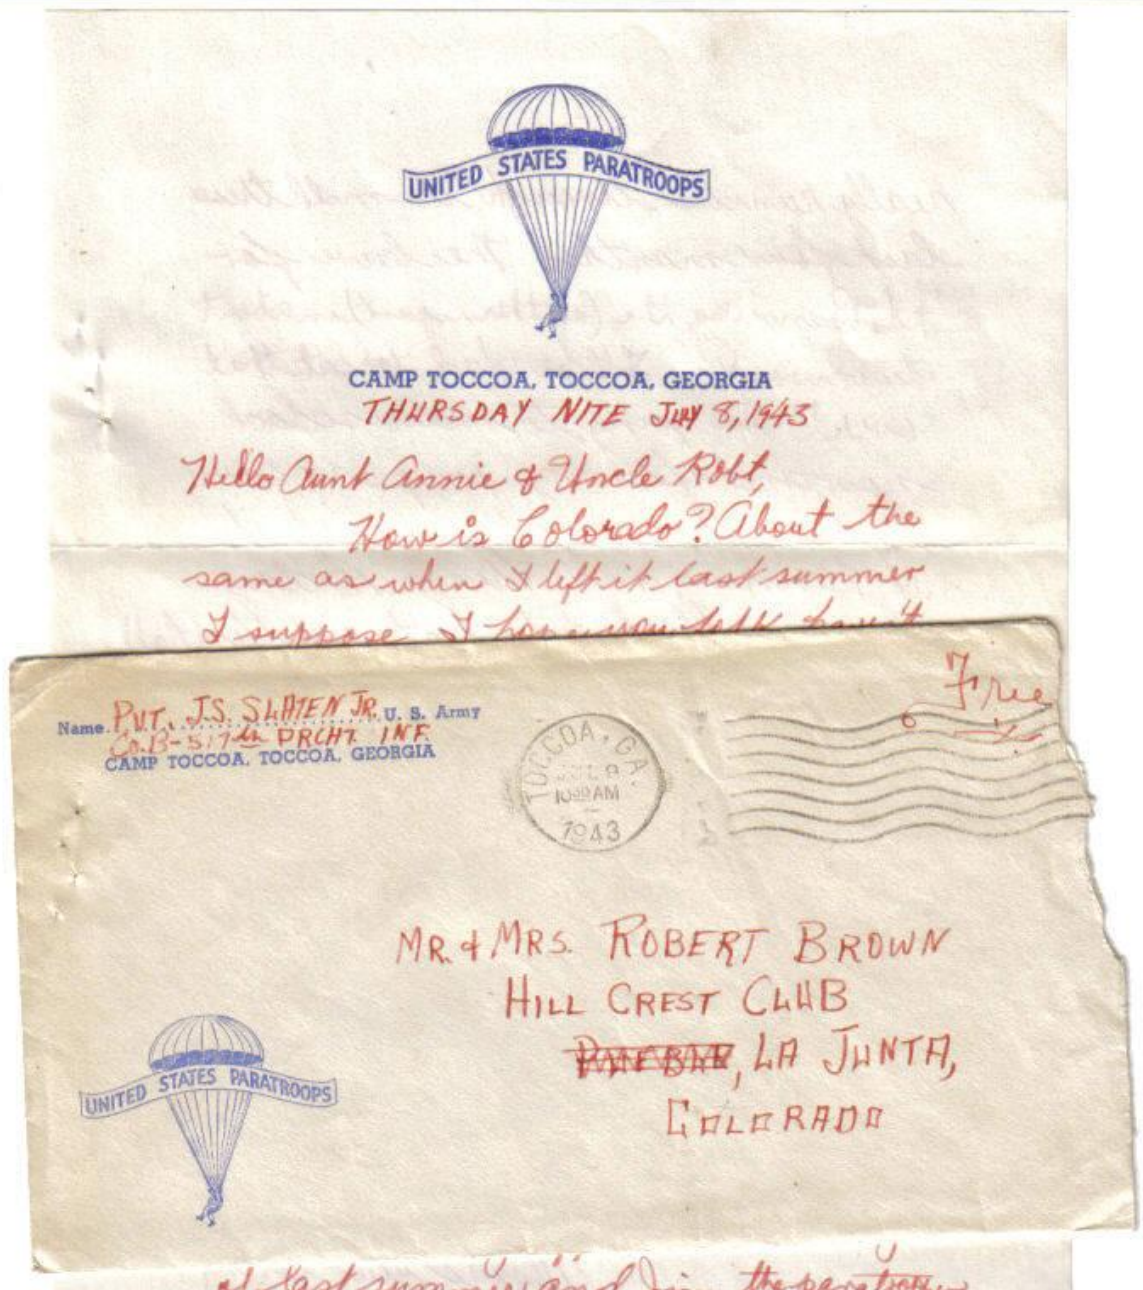 UNITED STATES PARATROOPS
CAMP TOCCOA, TOCCOA, GEORGIA
THURSDAY NITE July 8, 1943
Hello Aunt Annie & Uncle Robt,
How is Colorado? About the
same as when I left it last summer
I suppose. I hope you folk haven't
Name. PVT. J.S. SLATEN JR. U. S. Army
Co. B-517th PRCHT. INF.
CAMP TOCCOA, TOCCOA, GEORGIA
TOCCOA, GA.
10 AM
1943
Free
MR. & MRS. ROBERT BROWN
HILL CREST CLUB
, LA JUNTA,
COLORADO
UNITED STATES PARATROOPS
last summer and the